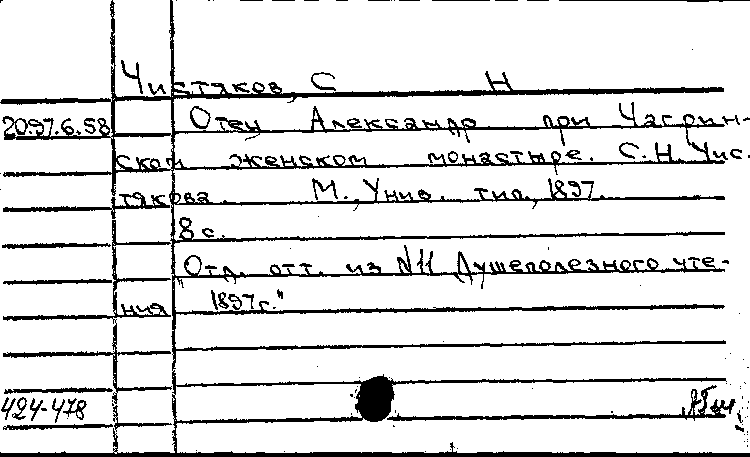 Чистяков, С Н
2097.6.58 Отец Александр при Чагрин-
ском женском монастыре. С.Н. Чис.
тякова. М., Унив. тип., 1897.
8 с.
"Отд. отт. из N11 Душеполезного чте-
ния 1897г."
424-478